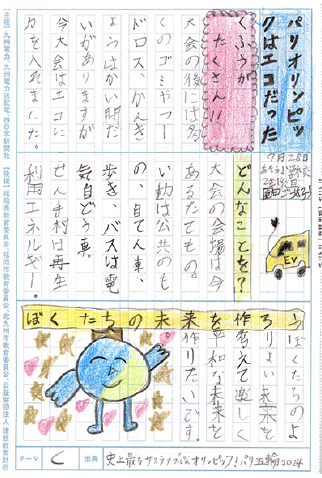 パリオリンピッ
クはエコだった
くふうが
たくさん!!
大会の後には多
くのゴミやフー
ドロス、かんき
ようはかい問だ
いがありますが
今大会はエコに
力を入れました。
7月28日
EV
どんなことを?
大会の会場は今
あるたてもの。
い動は公共のも
の、自てん車、
歩き、バスは電
気自どう車。
せん手村は再生
利用エネルギー。
ぼくたちの未来を作ろう
ぼくたちのよ
りよい未来を
考えて楽しく
平和な未来を
作りたいです。
テーマ
出典 史上最もサステナブルなオリンピック!パリ五輪2024
【主催】九州電力、九州電力送配電、西日本新聞社 【後援】福岡県教育委員会、福岡市教育委員会、北九州市教育委員会、(公益財団法人)理想教育財団